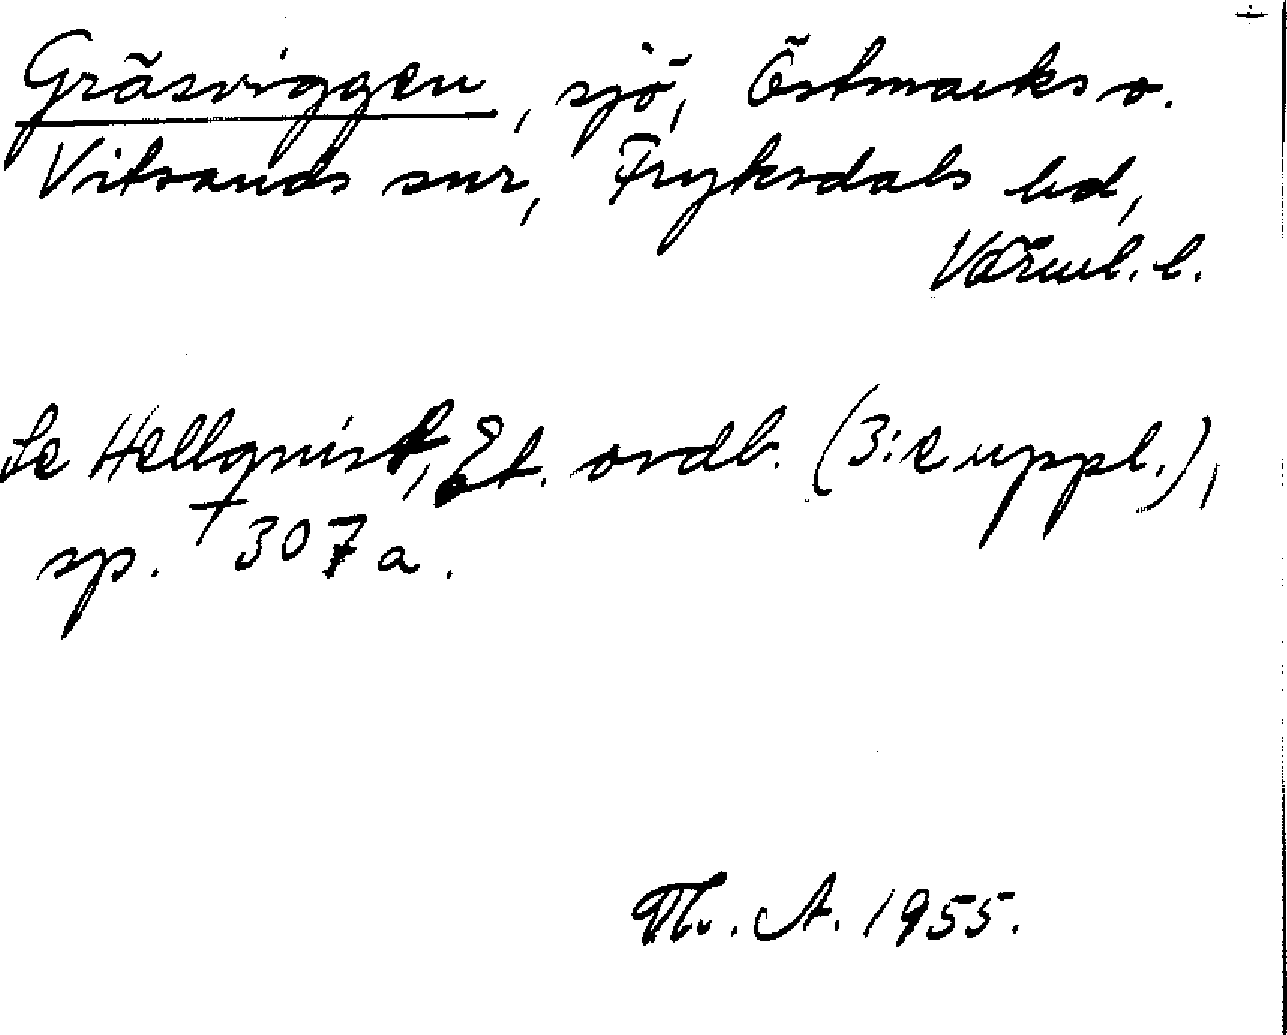 Gräsviggen, sjö, Östmarks o.
Vitsands snr, Fryksdals hd,
Värml. l.
Se Hellquist, Et. ordb. (3:e uppl.),
sp. 307 a.
Th. A. 1955.